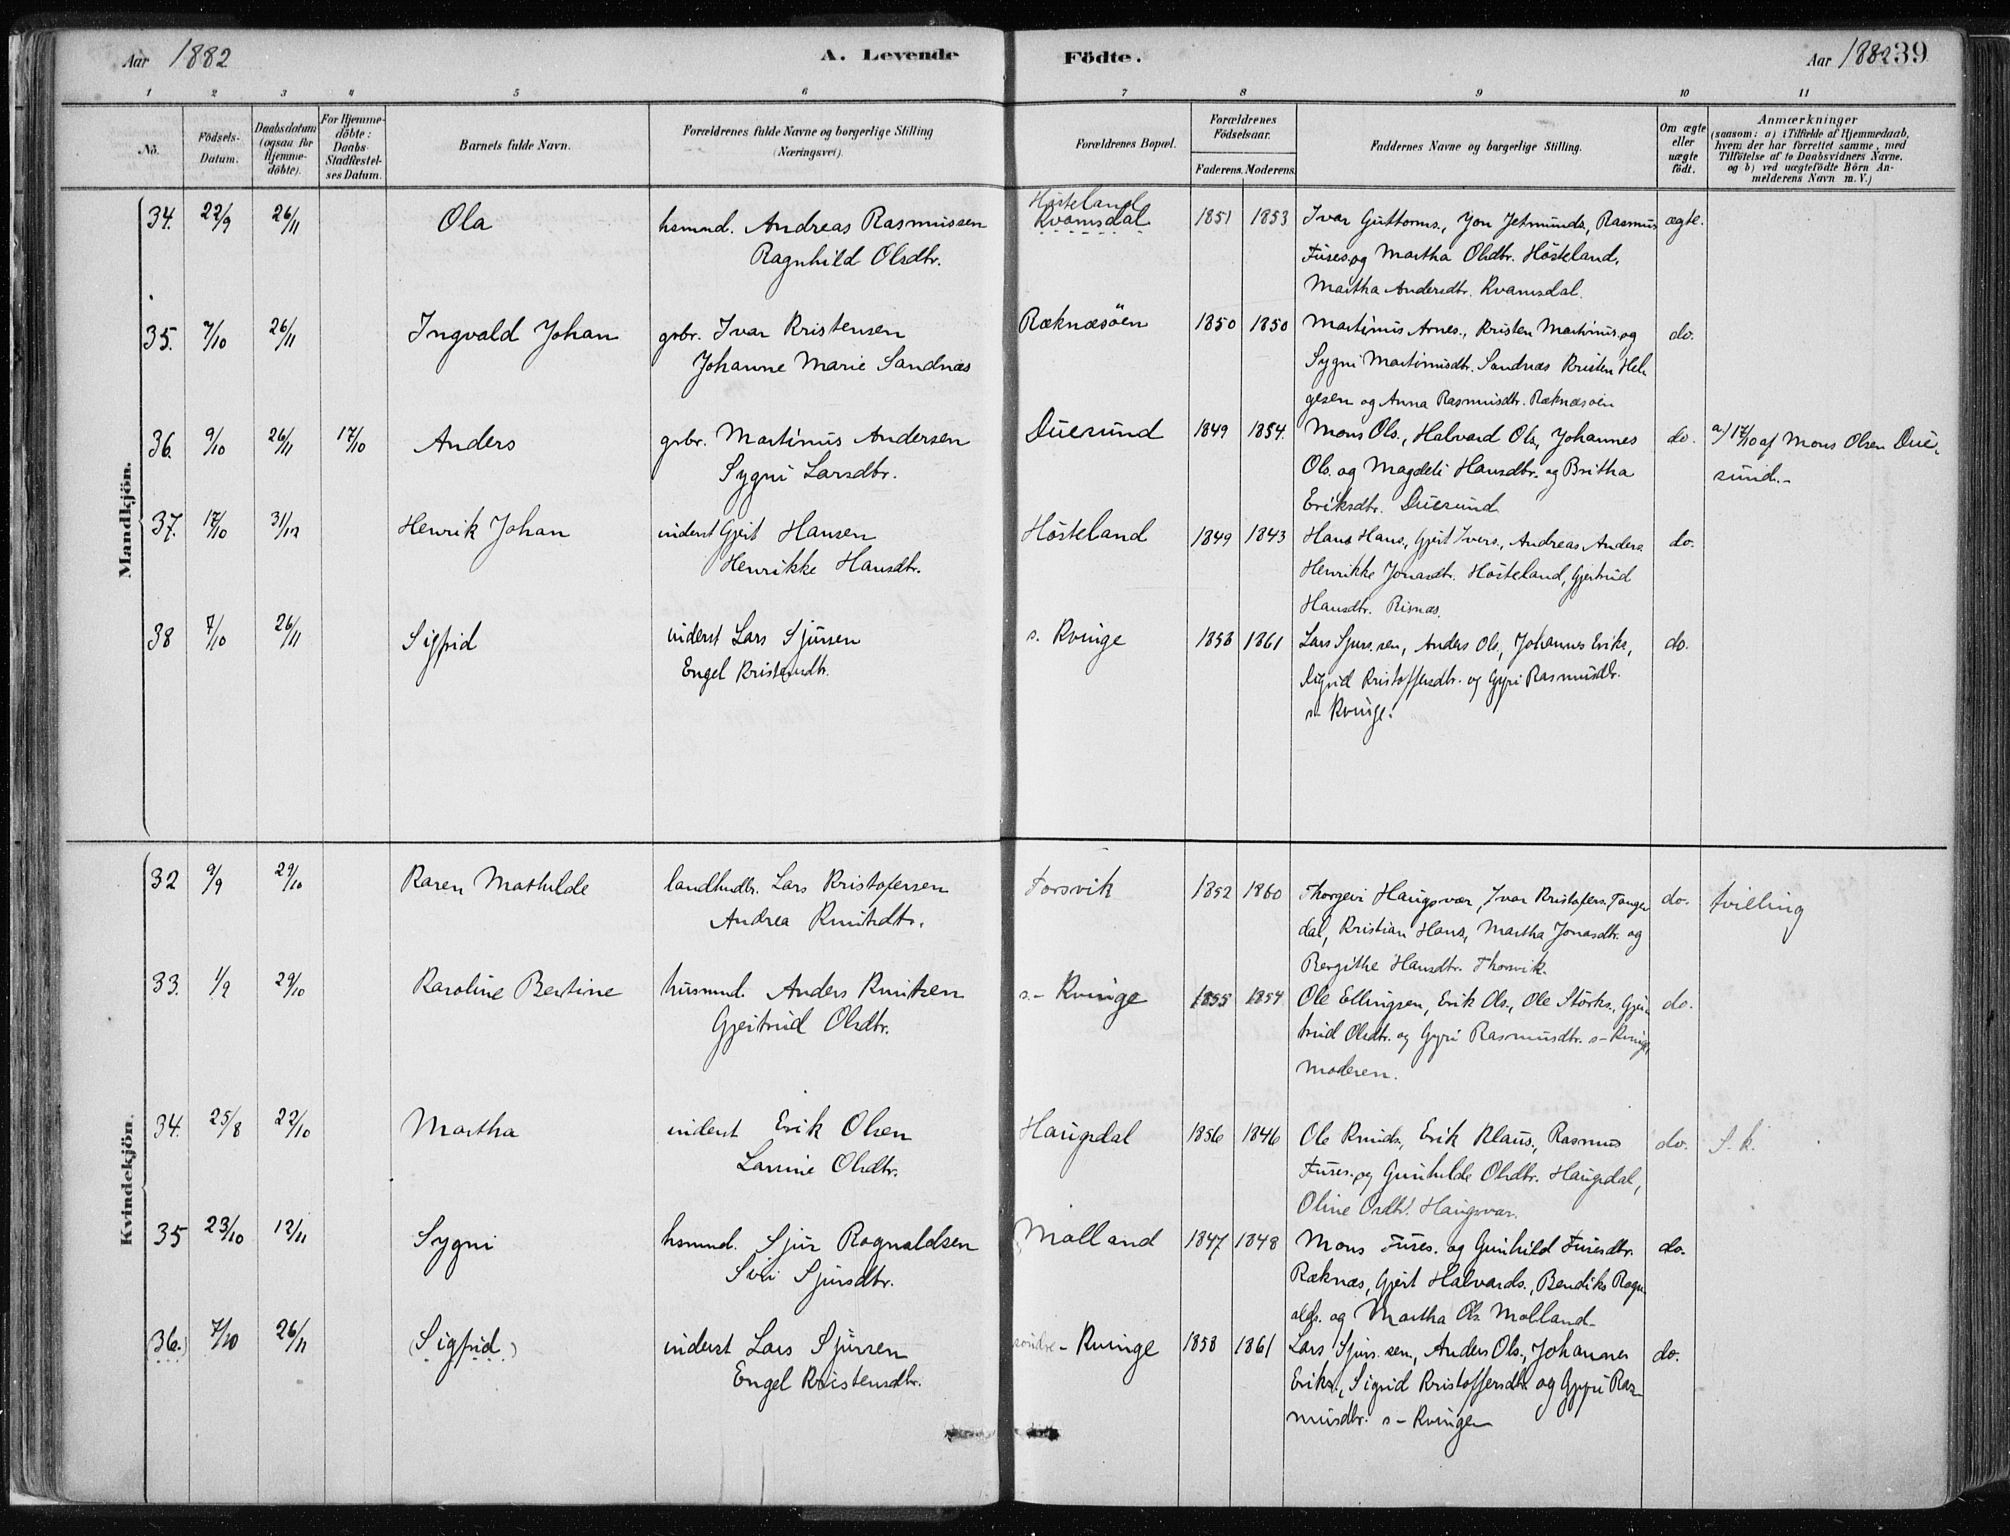 Aar 1882
A. Levende
Födte.
Aar 1882
39
1 2 3 4 5 6 7 8 9 10 11
No.
Födsels-
Datum.
Daabsdatum
(ogsaa for
Hjemme-
döbte).
For Hjemme-
döbte:
Daabs-
Stadfæstel-
ses Datum.
Barnets fulde Navn.
Forældrenes fulde Navne og borgerlige Stilling
(Næringsvei).
Forældrenes Bopæl.
Forældrenes
Födselsaar.
Faderens. Moderens.
Faddernes Navne og borgerlige Stilling.
Om ægte
eller
uægte
födt.
Anmærkninger
(saasom: a) i Tilfælde af Hjemmedaab,
hvem der har forrettet samme, med
Tilföielse af to Daabsvidners Navne,
og b) ved uægtefödte Börn An-
melderens Navn m. V.)
Mandkjön.
34. 22/9 26/11 Ola hsmnd. Andreas Rasmussen Hösteland Kvamsdal 1851 1853 Ivar Guttorms., Jon Jetmunds, Rasmus ægte.
Ragnhild Olsdtr. Fuses. og Martha Olsdtr. Hösteland,
Martha Andersdtr. Kvamsdal.
35. 7/10 26/11 Ingvald Johan grbr. Ivar Kristensen Ræknæsöen 1850 1850 Martinus Arnes., Kristen Martinus. og do.
Johanne Marie Sandnæs Sygni Martinusdtr. Sandnæs Kristen Hel-
gesen og Anna Rasmusdtr. Ræknæsöen
36. 9/10 26/11 17/10 Anders grbr. Martinus Andersen Duesund 1849 1854. Mons Ols., Halvard Ols., Johannes do. a/ 17/10 af Mons Olsen Due-
Sygni Larsdtr. Ols. og Magdeli Hansdtr. og Britha sund.-
Eriksdtr. Duesund
37. 17/10 31/12 Henrik Johan inderst Gjert Hansen Hösteland 1849 1843 Hans Hans., Gjert Ivers., Andreas Anders. do.
Henrikke Hansdtr. Henrikke Jonasdtr. Hösteland, Gjertrud
Hansdtr. Risnæs.
38 7/10 26/11 Sigfrid inderst Lars Sjursen s. Kvinge 1858 1861 Lars Sjurs. sen, Anders Ols., Johannes Eriks., do.
Engel Kristensdtr. Sigrid Kristoffersdtr. og Gyri Rasmusdtr.
s- Kvinge.
Kvindekjön.
32 9/9 29/10 Karen Mathilde landhndlr. Lars Kristofersen Forsvik 1852 1860 Thorgeri Haugsvær, Ivar Kristofers. Tange- do. tvilling
Andrea Knutsdtr. dal, Kristian Hans., Martha Jonasdtr. og
Bergithe Hansdtr. Thorsvik.
33. 1/9 29/10 Karoline Bertine husmnd. Anders Knutsen s.- Kvinge 1855 1854 Ole Ellingsen, Erik Ols., Ole Störks., Gjer- do.
Gjertrud Olsdtr. trud Olsdtr. og Gyri Rasmusdtr. s- Kvinge,
moderen.
34. 25/8 22/10 Martha inderst Erik Olsen Haugsdal 1856 1846 Ole Knuds., Erik Klaus., Rasmus do. S. k.
Larine Olsdtr. Fuses. og Gunhilde Olsdtr. Haugsdal,
Oline Olsdtr. Haugsvær.
35 23/10 12/11 Sygni hsmnd. Sjur Rognaldsen Molland 1847 1848 Mons Fuses. og Gunhild Fusesdtr. do.
Siri Sjursdtr. Ræknæs, Gjert Halvards., Bendiks Rogn-
alds. og Martha Ols. Molland-
36.) 7/10 26/11 (Sigfrid) inderst Lars Sjursen söndre- Kvinge 1858 1861 Lars Sjurs. sen, Anders Ols., Johannes do.
Engel Kristensdtr. Eriks., Sigrid Kristoffersdtr. og Gyri Ras-
musdtr. s- Kvinge